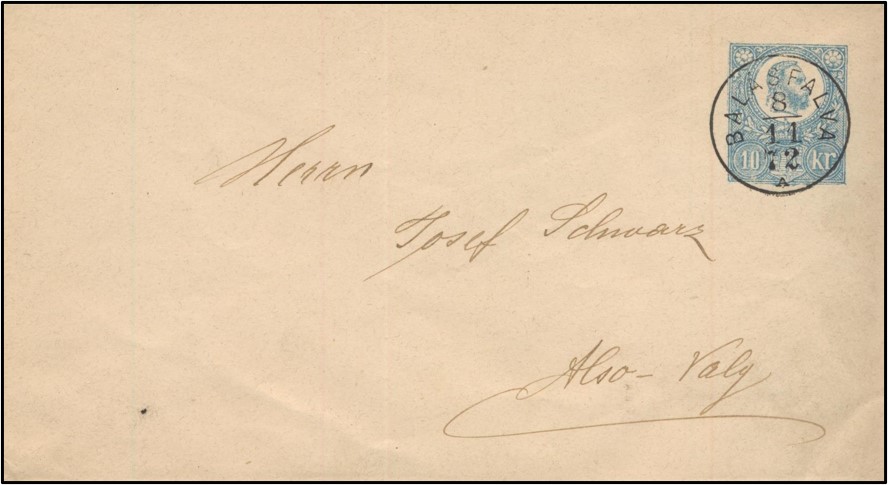 BALÁSFALVA
8
11
72
A
10 kr
Herrn
Josef Schwarz
Also-Valy